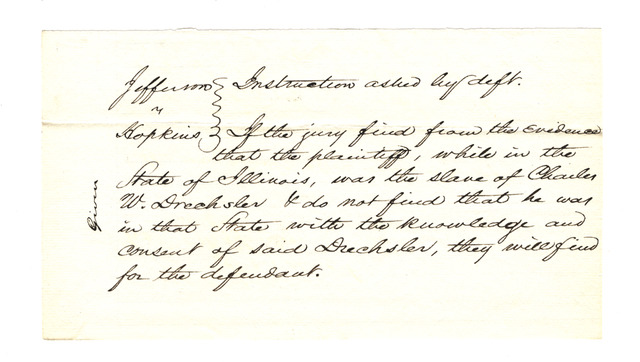 Jefferson } Instruction asked by deft.
v
Hopkins } If the jury find from the evidence
that the plaintiff, while in the
State of Illinois, was the slave of Charles
W. Drechsler & do not find that he was
in that State with the knowledge and
consent of said Drechsler, they will find
for the defendant.
Given